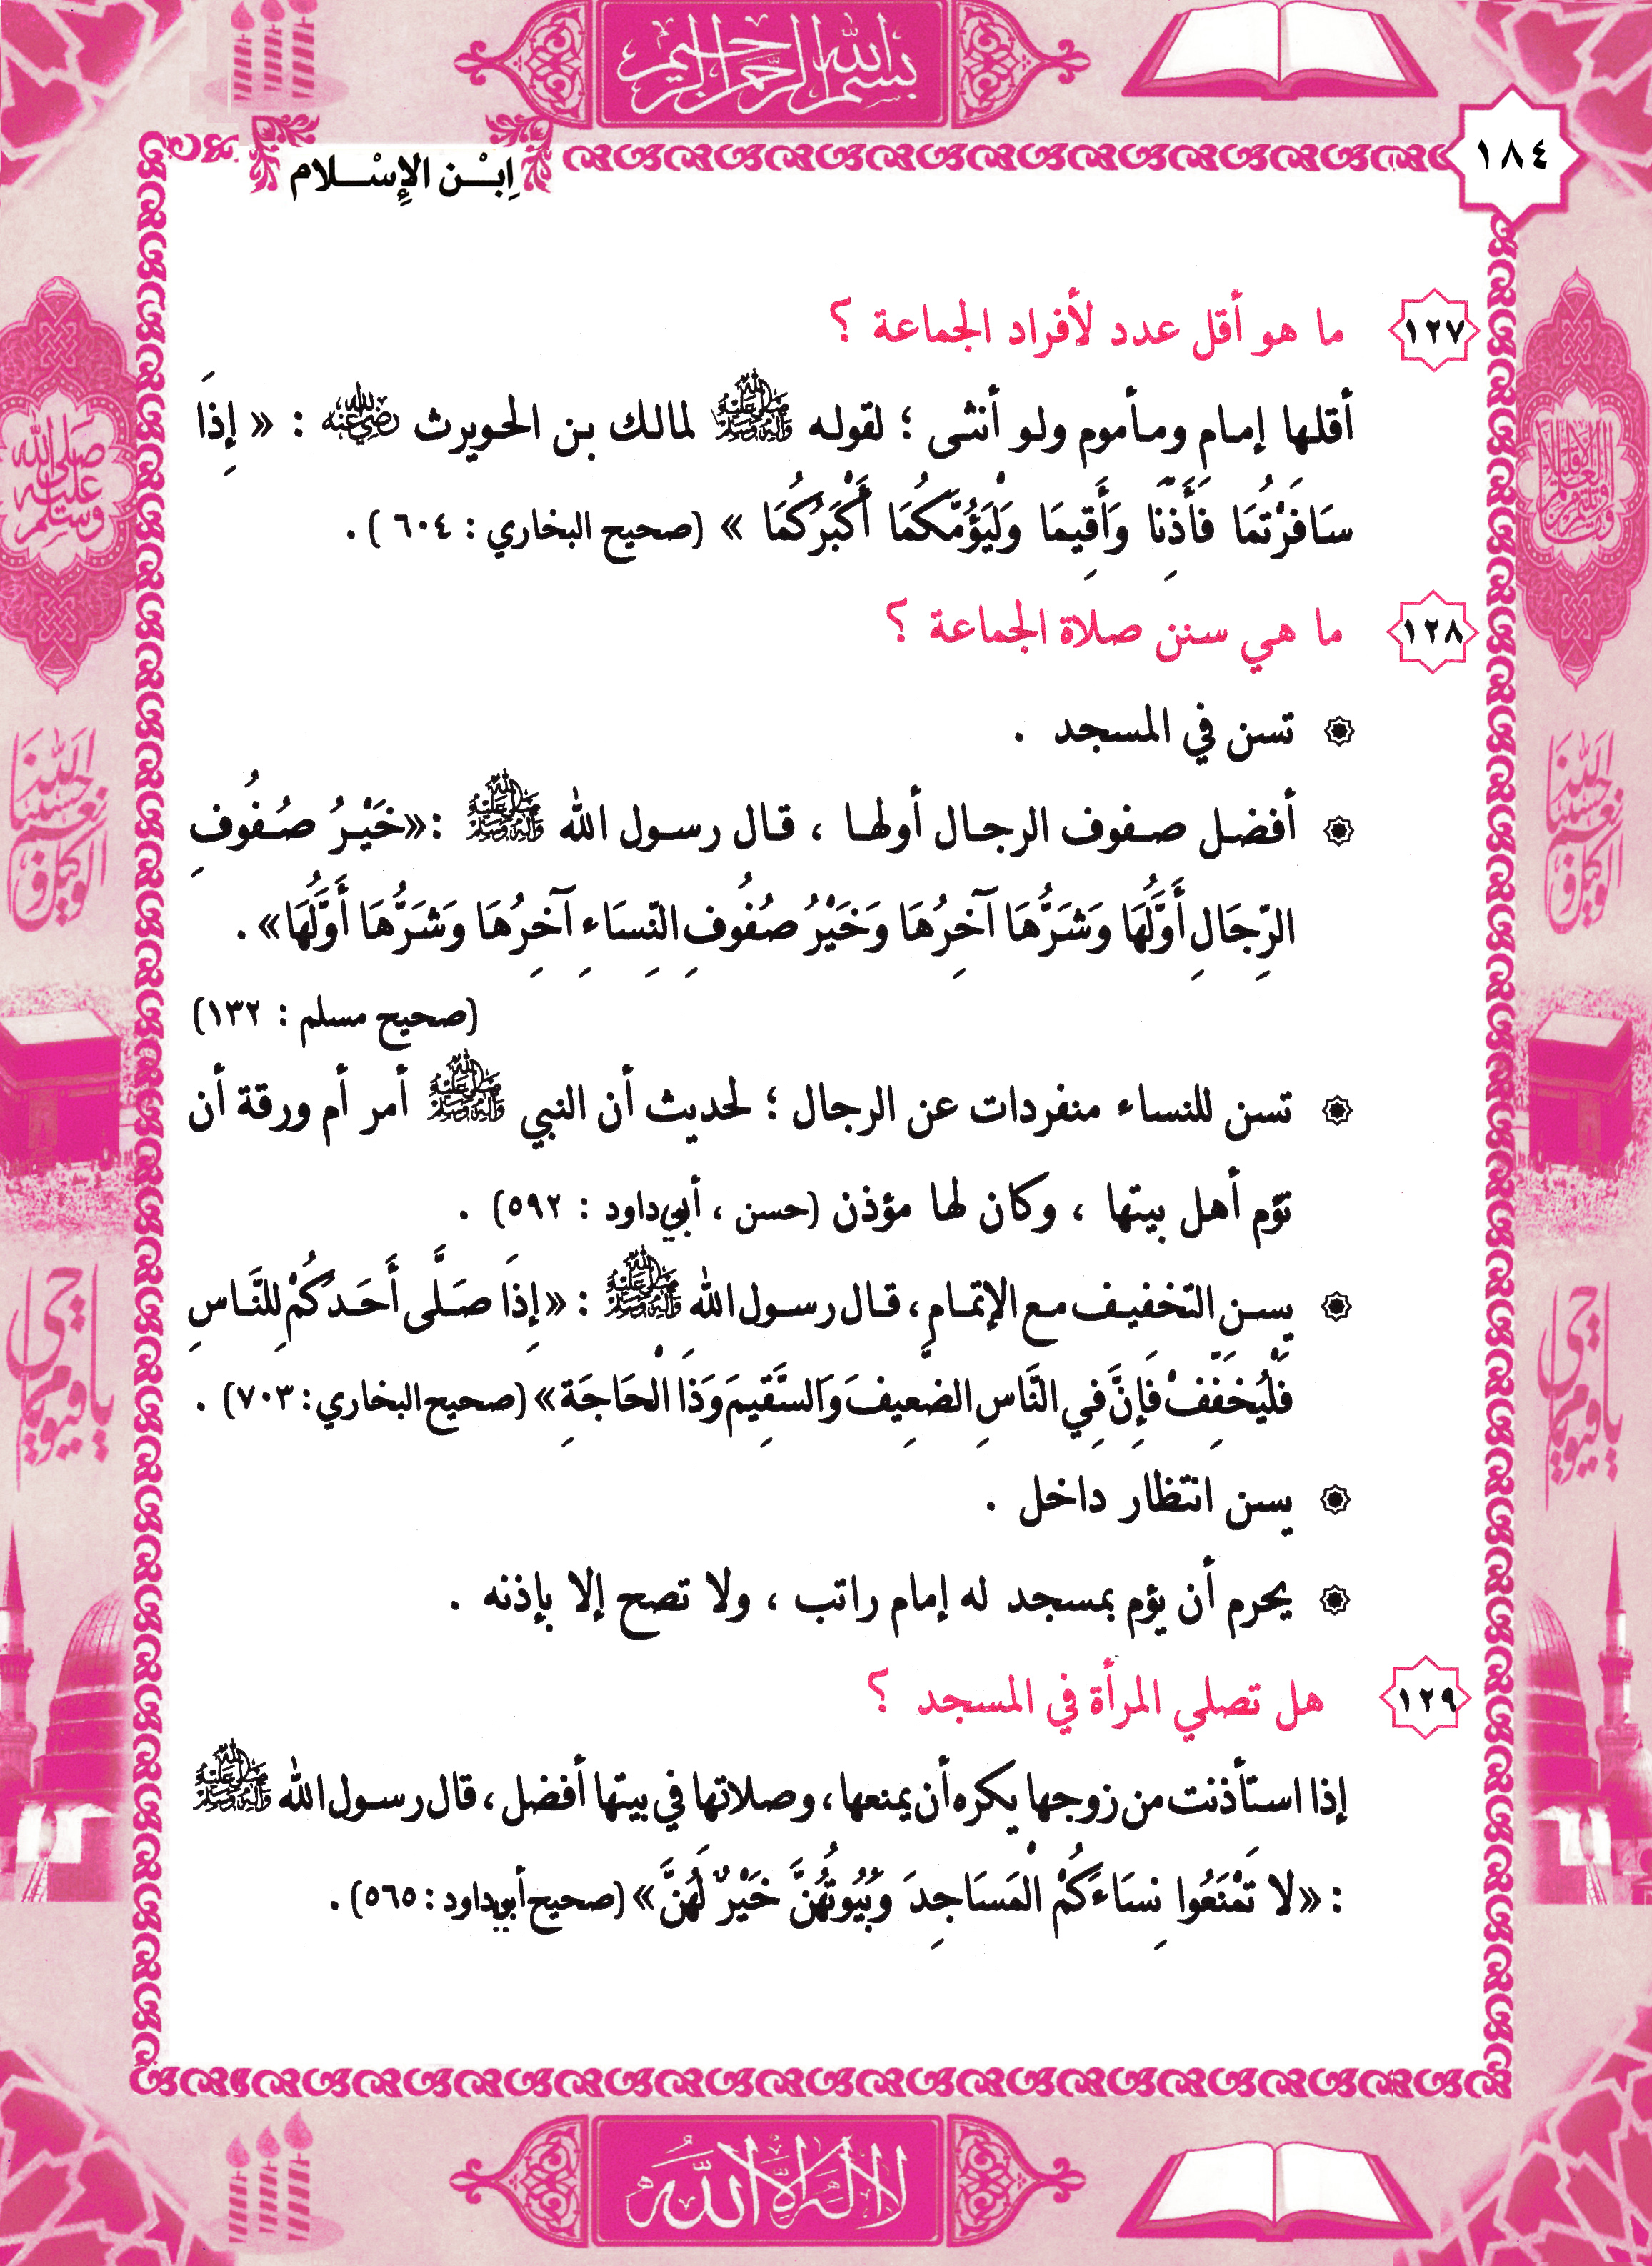 بسم الله الرحمن الرحيم
١٨٤
اِبْـــن الإِسْـــلام
١٢٧ ما هو أقل عدد لأفراد الجماعة ؟
أقلها إمام ومأموم ولو أنثى ؛ لقوله ﷺ لمالك بن الحويرث رضي الله عنه : « إِذَا
سَافَرْتُمَا فَأَذِّنَا وَأَقِيمَا وَلْيَؤُمَّكُمَا أَكْبَرُكُمَا » (صحيح البخاري : ٦٠٤ ) .
١٢٨ ما هي سنن صلاة الجماعة ؟
تسن في المسجد .
أفضـل صـفوف الرجـال أولهـا ، قـال رسـول الله ﷺ :«خَيْـرُ صُـفُوفِ
الرِّجَالِ أَوَّلُهَا وَشَرُّهَا آخِرُهَا وَخَيْرُ صُفُوفِ النِّسَاءِ آخِرُهَا وَشَرُّهَا أَوَّلُهَا» .
(صحيح مسلم : ١٣٢)
تسن للنساء منفردات عن الرجال ؛ لحديث أن النبي ﷺ أمر أم ورقة أن
تؤم أهل بيتها ، وكان لها مؤذن (حسن ، أبي داود : ٥٩٢) .
يسـن التخفيـف مـع الإتمـام ، قـال رسـول الله ﷺ : «إِذَا صَـلَّى أَحَـدُكُمْ لِلنَّـاسِ
فَلْيُخَفِّفْ فَإِنَّ فِي النَّاسِ الضَّعِيفَ وَالسَّقِيمَ وَذَا الْحَاجَةِ» (صحيح البخاري : ٧٠٣) .
يسن انتظار داخل .
يحرم أن يؤم بمسجد له إمام راتب ، ولا تصح إلا بإذنه .
١٢٩ هل تصلي المرأة في المسجد ؟
إذا استأذنت من زوجها يكره أن يمنعها ، وصلاتها في بيتها أفضل ، قال رسول الله ﷺ
: «لا تَمْنَعُوا نِسَاءَكُمْ الْمَسَاجِدَ وَبُيُوتُهُنَّ خَيْرٌ لَهُنَّ» (صحيح أبي داود : ٥٦٥) .
صلى الله عليه وسلم
حسبنا الله ونعم الوكيل
يا حي يا قيوم
حسبنا الله ونعم الوكيل
يا حي يا قيوم
لا إله إلا الله